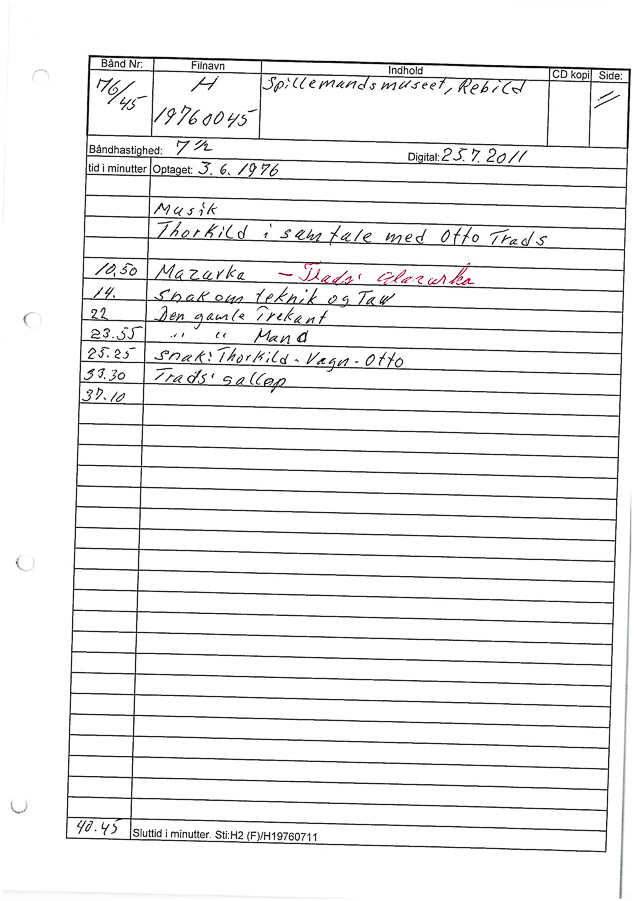 Bånd Nr: Filnavn Indhold CD kopi Side:
76/45 H Spillemandsmuseet, Rebild
19760045
Båndhastighed: 7 1/2 Digital: 25.7.2011
tid i minutter Optaget: 3.6.1976
Musik
Thorkild i samtale med Otto Trads
10.50 Mazurka - Trads'
14. Snak om teknik og
22 Den gamle Trekant
23.55 " " Mand
25.25 Snak: Thorkild - Vagn - Otto
33.30 Trads' gallop
37.10
40.45 Sluttid i minutter. Sti:H2 (F)/H19760711